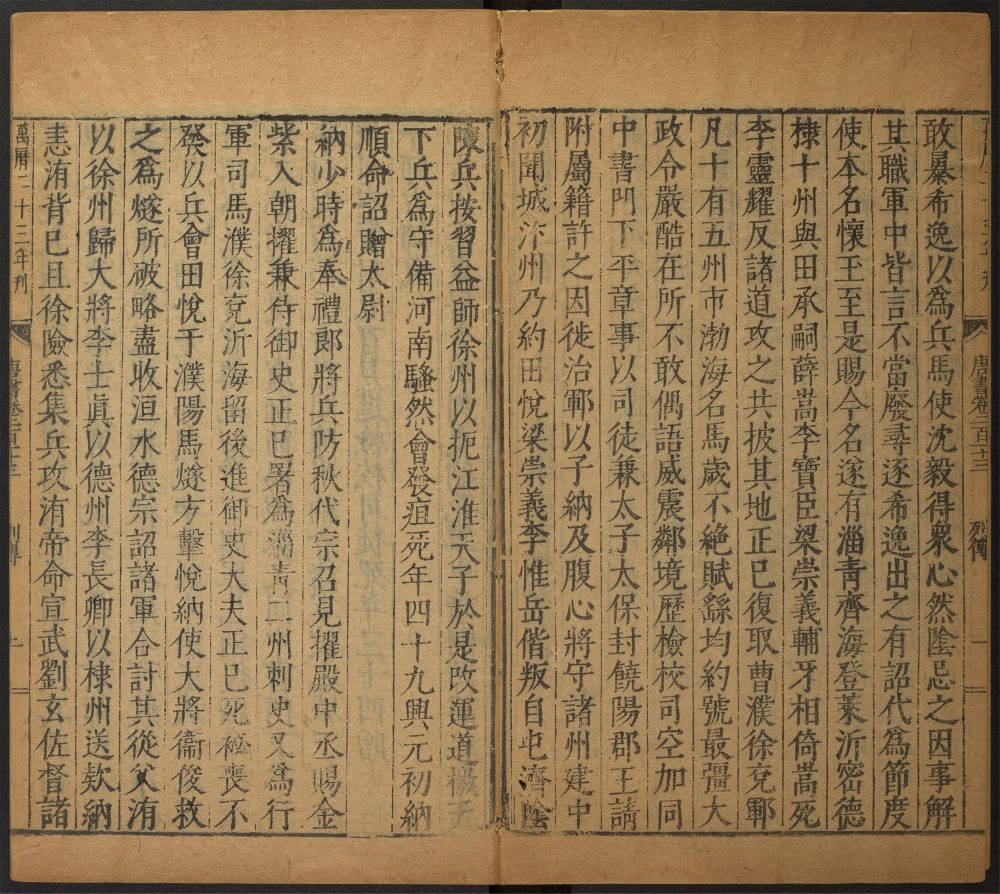 敢暴希逸以爲兵馬使沈毅得衆心然陰忌之因事解
其職軍中皆言不當廢尋逐希逸出之有詔代爲節度
使本名懷王至是賜今名遂有淄青齊海登萊沂密德
棣十州與田承嗣薛嵩李寶臣梁崇義輔牙相倚嵩死
李靈耀反諸道攻之共披其地正已復取曹濮徐兗鄆
凡十有五州市渤海名馬歲不絕賦繇均約號最彊大
政令嚴酷在所不敢偶語威震鄰境歷檢校司空加同
中書門下平章事以司徒兼太子太保封饒陽郡王請
附屬籍許之因徙治鄆以子納及腹心將守諸州建中
初聞城汴州乃約田悅梁崇義李惟岳偕叛自屯濟陰
陳兵按習益師徐州以扼江淮天子於是改運道檄天
下兵爲守備河南騷然會發疽死年四十九興元初納
順命詔贈太尉
納少時爲奉禮郎將兵防秋代宗召見擢殿中丞賜金
紫入朝擢兼侍御史正已署爲淄青二州刺史又爲行
軍司馬濮徐兗沂海留後進御史大夫正已死秘喪不
發以兵會田悅于濮陽馬燧方擊悅納使大將衞俊救
之爲燧所破略盡收洹水德宗詔諸軍合討其從父洧
以徐州歸大將李士眞以德州李長卿以棣州送款納
恚洧背已且徐險悉集兵攻洧帝命宣武劉玄佐督諸
唐書卷二百十三
列傳
萬曆二十三年刊
唐書卷二百十三
列傳